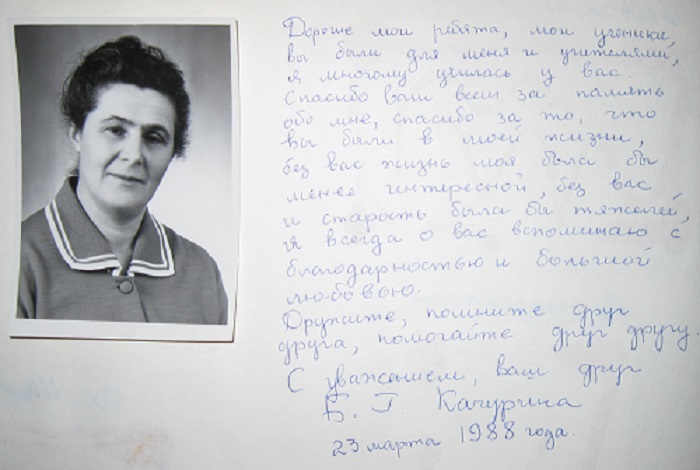 Дорогие мои ребята, мои ученики,
вы были для меня и учителями,
я многому училась у вас.
Спасибо вам всем за память
обо мне, спасибо за то, что
вы были в моей жизни,
без вас жизнь моя была бы
менее интересной, без вас
и старость была бы тяжелей,
я всегда о вас вспоминаю с
благодарностью и большой
любовью.
Дружите, помните друг
друга, помогайте друг другу.
С уважением, ваш друг
Б. Г. Качурина
23 марта 1988 года.